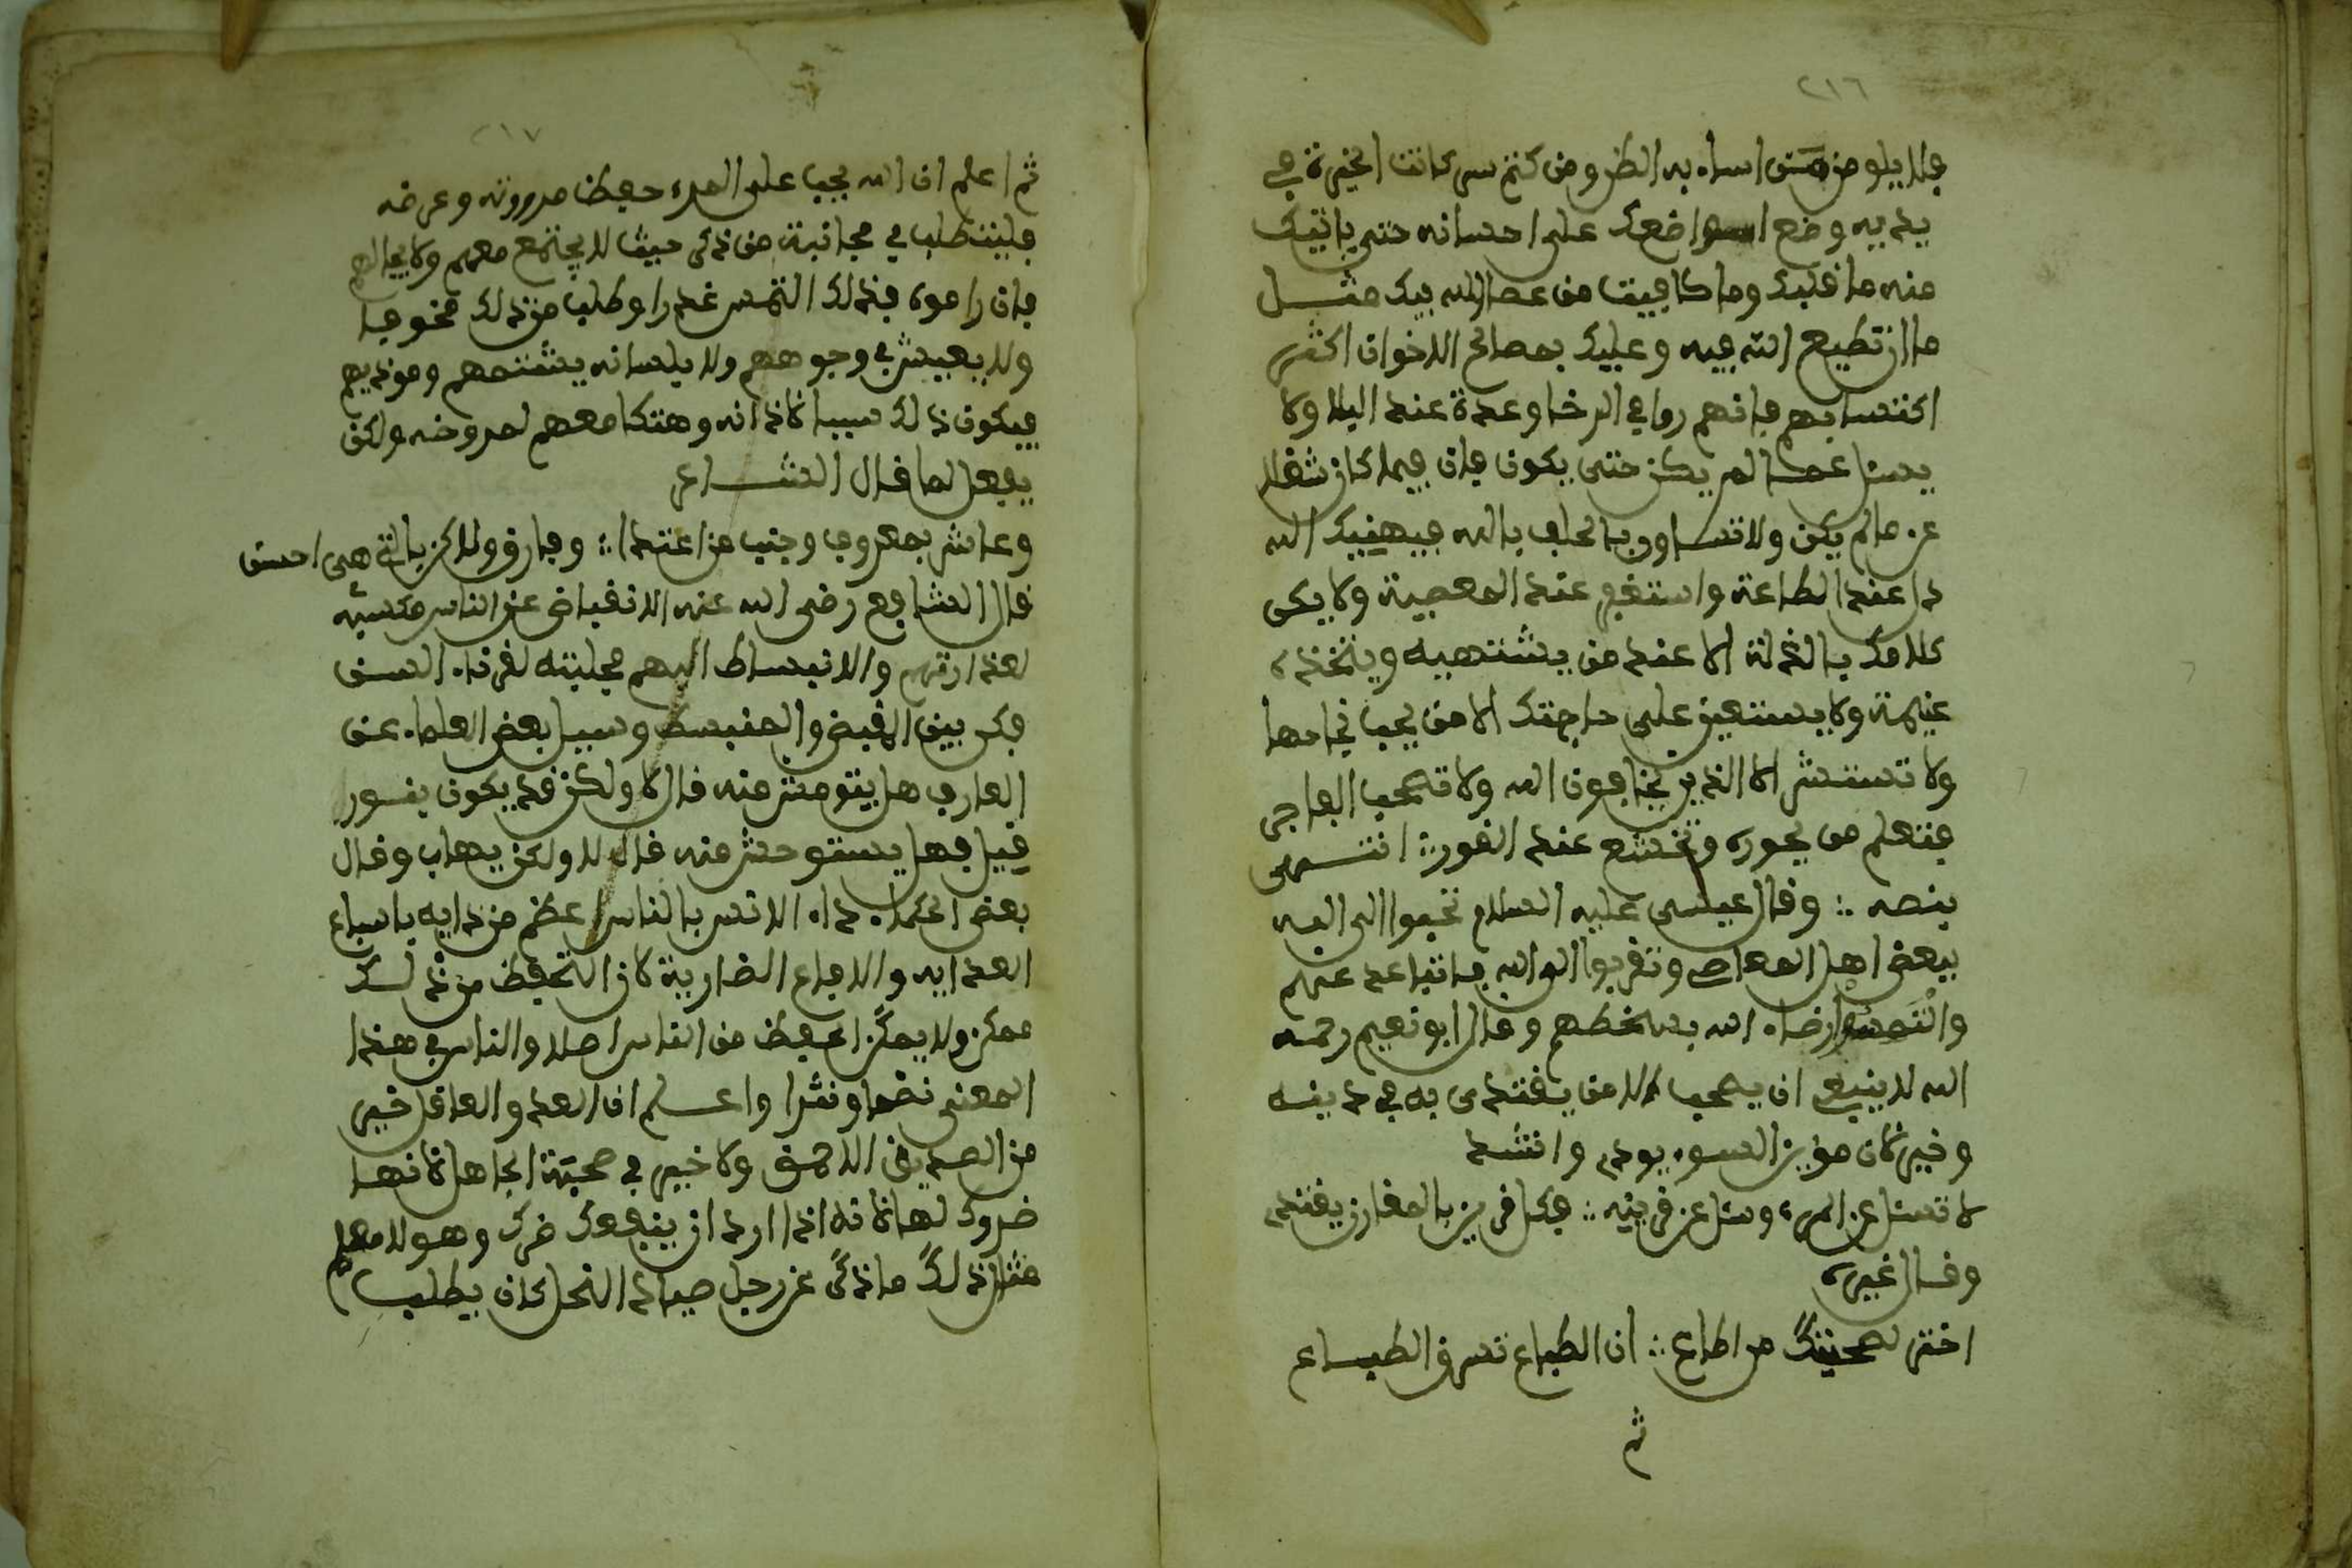 ٢١٦
فلا يلومن من اساء به الظن ومن كتم سره كانت الخيرة في
يديه وضع امر اخيك على احسانه حتى ياتيك
منه ما غلبك وما كافيت من عصا الله فيك مثل
ما ان تطيع الله فيه وعليك بصالح الاخوان اكثر
اكتسابهم فانهم زين في الرخا وعدة عند البلا ولا
يسئل عما لم يكن حتى يكون فان فيما كان شغلا
عن ما لم يكن ولا تهاون بالحلف بالله فيهينك الله
عند الطاعة واستعـ عند المعصية ولا يكن
كلامك بالغدلة الا عند من يشتهيه ويتخذه
غنيمة ولا يستعين على حاجتك الا من يحب نجاحها
ولا تستشر الا الذين يخافون الله ولا تصحب الفاجر
فتعلم من فجوره وتخشع عند القبور انتهى
بنصه وقال عيسى عليه السلام تحببوا الى الله
ببعض اهل المعاصي وتقربوا الى الله بالتباعد عنهم
والتمسوا رضاء الله بسخطهم وقال ابو نعيم رحمه
الله لا ينبغي ان يصحب الا من يقتدى به في دينه
وخيره لان قرين السوء يودي وانشد
لا تسئل عن المرء وسل عن قرينه فكل قرين بالمقارن يقتدي
وقال غيره
اختر لصحبتك من اطاع ان الطباع تسرق الطباع
ثم
٢١٧
ثم اعلم ان الله يجب على المرء حفظ مروءته وعرضه
فليتطلب في مجانبة من ذكر حيث لا يجتمع معهم ولا يخالطهم
فان راموه فذلك التمس عذرا وطلب من ذلك مخرجا
ولا يعبس في وجوههم ولا بلسانه يشتمهم ويوذيهم
فيكون ذلك سببا لاذانه وهتكا معهم لعرضه ولكن
يفعل كما قال الشاعر
وعاشر بمعروف وجنب من اعتدا وفارق ولاكن بالتي هي احسن
قال الشافعي رضي الله عنه الانقباض عن الناس مكسبة
لعداوتهم والانبساط اليهم مجلبة لقرناء السوء
فكن بين المنقبض والمنبسط وسئل بعض العلماء عن
العارف هل يتوحش منه قال لا ولكن قد يكون نفورا
قيل فهل يستوحش منه قال لا ولكن يهاب وقال
بعض الحكماء داء الانس بالناس اعظم من دايه بالسباع
العدايه والافاع الضارية لان التحفظ من ذلك
ممكن ولا يمكن الحفظ من الناس اصلا والناس في هذا
المعنى نظما ونثرا واعلم ان العدو العاقل خير
من الصديق الاحمق ولا خير في صحبة الجاهل لانها
ضرورك لها لانه اذا اراد ان ينفعك ضرك وهو لا يعلم
مثل ذلك ما ذكر عن رجل صياد النحل كان يطلب